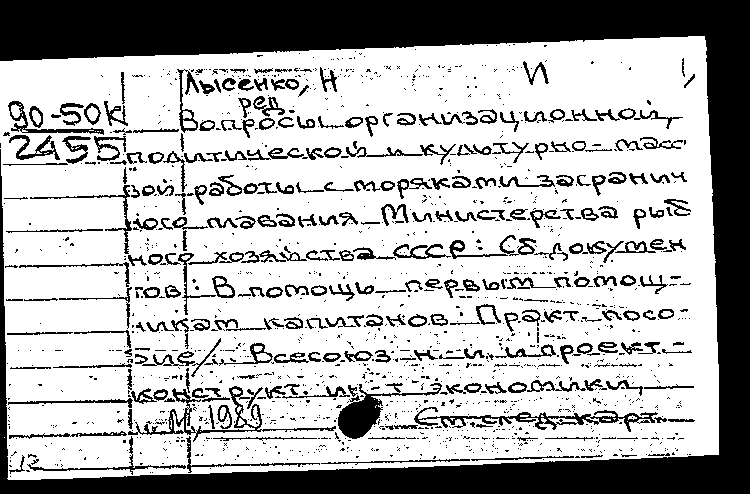 Лысенко, Н И
ред.
90-50К
2455
Вопросы организационной,
политической и культурно-масс
вой работы с моряками загранич
ного плавания Министерства рыб
ного хозяйства СССР: Сб докумен
тов: В помощь первым помощ-
никам капитанов: Практ. посо-
бие/... Всесоюз н.-и. и проект.-
конструкт. ин-т экономики,
... М, 1989 См. след. карт.
12